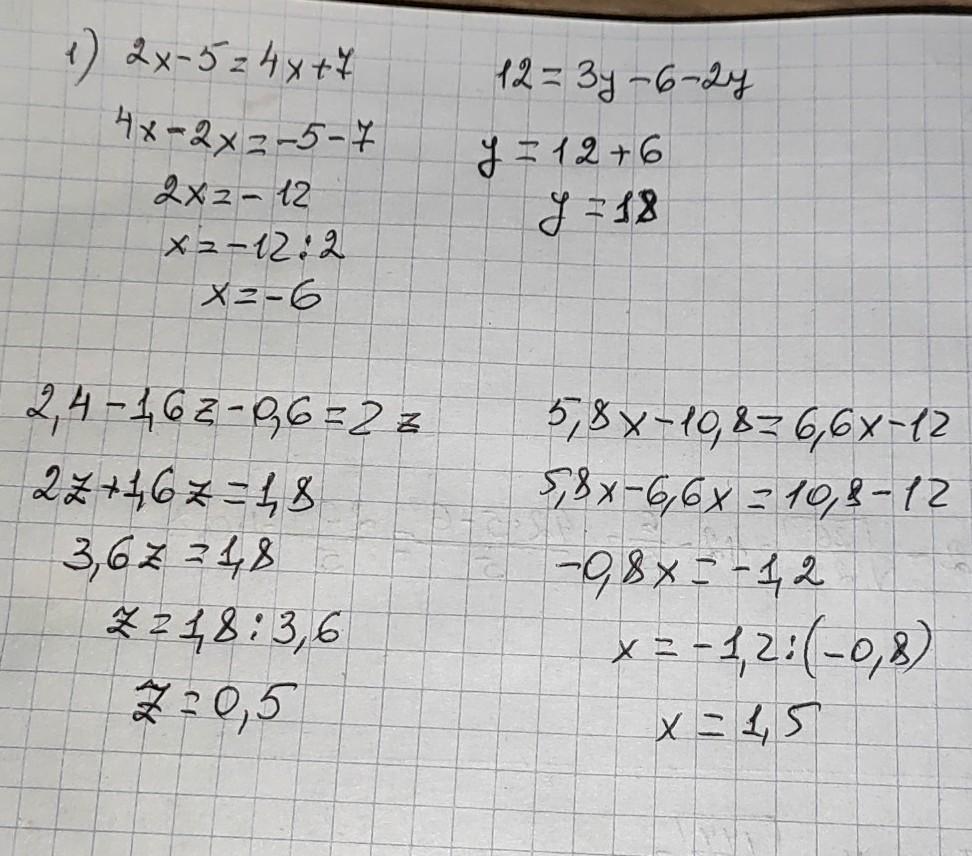 1) 2x-5=4x+7
4x-2x=-5-7
2x=-12
x=-12:2
x=-6
12=3y-6-2y
y=12+6
y=18
2,4-1,6z-0,6=2z
2z+1,6z=1,8
3,6z=1,8
z=1,8:3,6
z=0,5
5,8x-10,8=6,6x-12
5,8x-6,6x=10,8-12
-0,8x=-1,2
x=-1,2:(-0,8)
x=1,5